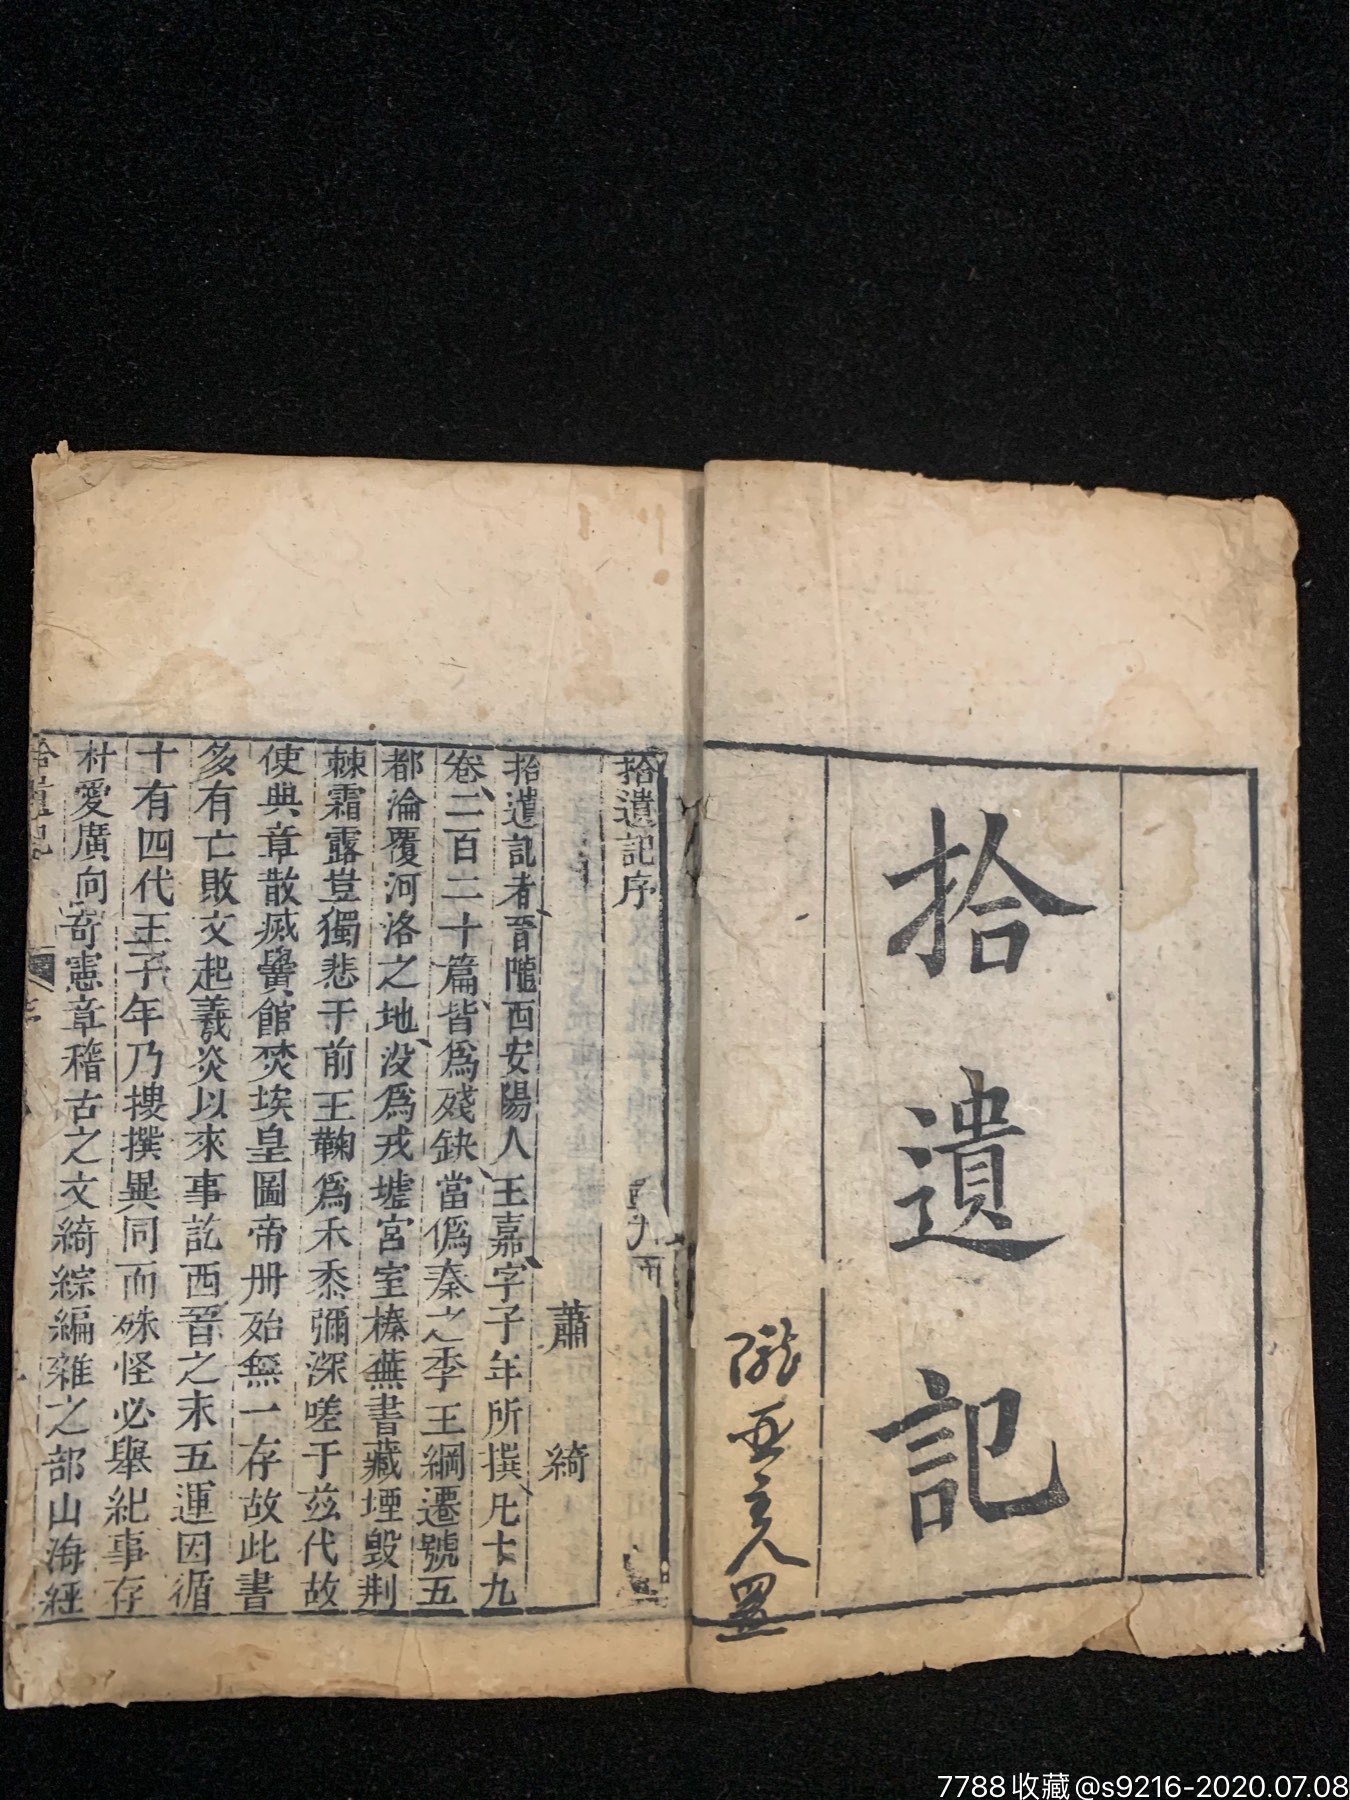 拾遺記
隴西主人置
拾遺記序
蕭綺
拾遺記者晉隴西安陽人王嘉字子年所撰凡十九
卷二百二十篇皆爲殘缺當僞秦之季王綱遷號五
都淪覆河洛之地沒爲戎墟宮室榛蕪書藏堙毀荆
棘霜露豈獨悲于前王鞠爲禾黍彌深嗟于兹代故
使典章散滅黌館焚埃皇圖帝册殆無一存故此書
多有亡敗文起羲炎以來事訖西晉之末五運因循
十有四代王子年乃搜撰異同而殊怪必舉紀事存
朴愛廣向奇憲章稽古之文綺綜編雜之部山海經
拾遺記
序
7788收藏@s9216-2020.07.08